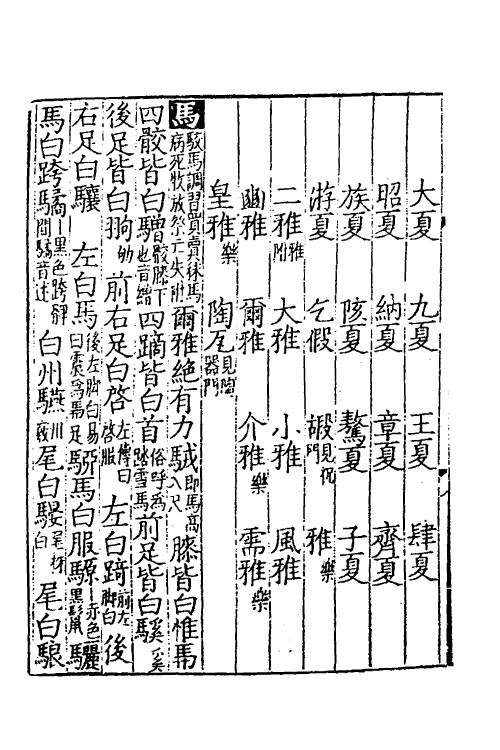 大夏 九夏 王夏 肆夏
昭夏 納夏 章夏 齊夏
族夏 陔夏 驁夏 子夏
游夏 乞假 嘏見祝門 雅樂
二雅附雅 大雅 小雅 風雅
豳雅 爾雅 介雅樂 需雅樂
皇雅樂 陶瓦見陶器門
馬駿馬調習買賣秣馬病死牧放祭亡失附 爾雅絶有力駥即馬高八尺 膝皆白惟馵
四骹皆白驓曾骹膝下也音繒 四蹢皆白首俗呼為踏雪馬 前足皆白騱奚
後足皆白翑劬 前右足白啓左傳曰啓服 左白踦前左脚白 後
右足白驤 左白馵後左脚白易曰震為馵足 驈馬白服騵赤色黑鬣 驪
馬白跨驈黑色跨髀間驈音述 白州驠州竅 尾白 尾白駺